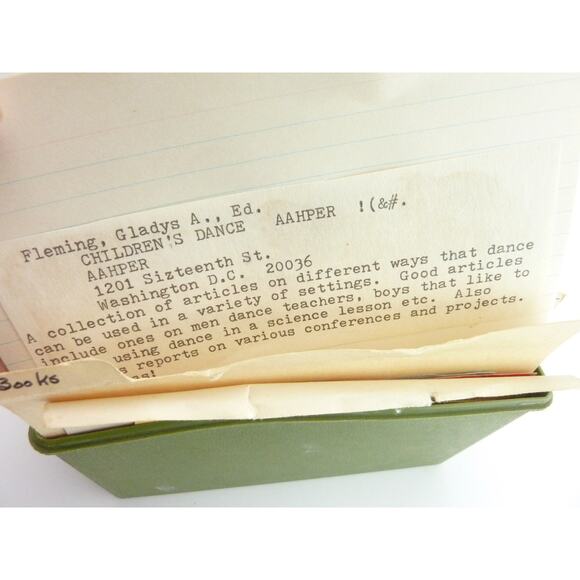 Fleming, Gladys A., Ed.
CHILDREN'S DANCE AAHPER !(&#.
AAHPER
1201 Sizteenth St.
Washington D.C. 20036
A collection of articles on different ways that dance
can be used in a variety of settings. Good articles
include ones on men dance teachers, boys that like to
using dance in a science lesson etc. Also
reports on various conferences and projects.
Books